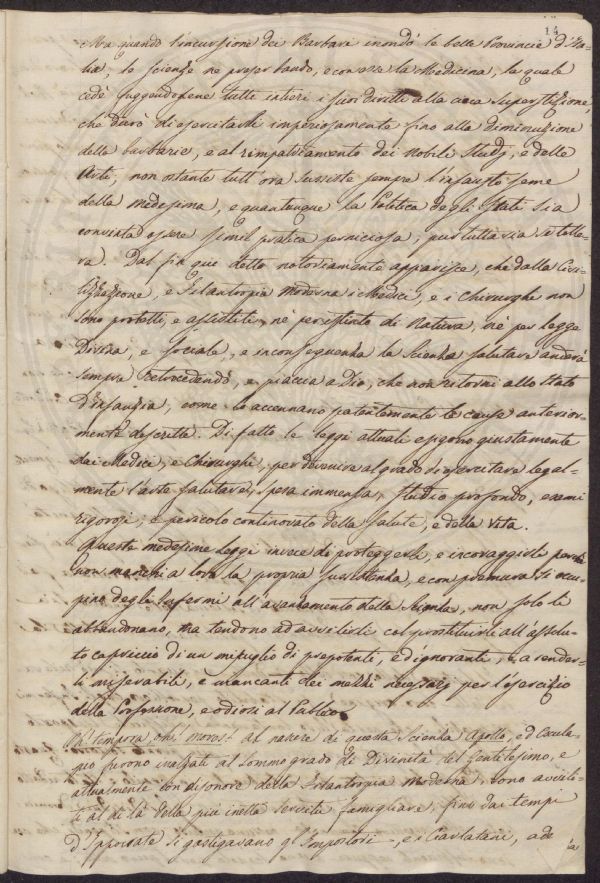 14
Ma quando l'incursione dei Barbari inondò le belle Provincie d'Ita-
lia, le scienze ne presero bando, e con esse la Medicina, la quale
cedè suggendosene tutti intieri i suoi diritti alla cieca superstizione,
che durò di esercitarli imperiosamente fino alla diminuzione
della barbarie, e al rimpatriamento dei Nobili Studj, e delle
Arti, non ostante tutt'ora sussiste sempre l'infausto seme
della medesima, e quantunque la Politica degli Stati sia
convinta essere simil pratica perniciosa; pur tuttavia si tolle-
ra. Dal fin qui detto notoriamente apparisce, che dalla Civi-
lizzazione, e Filantropia moderna i Medici, e i Chirurghi non
sono protetti, e assistiti, nè per istinto di Natura, nè per legge
Divina, e sociale, e in conseguenza la Scienza salutare anderà
sempre retrocedendo, e piaccia a Dio, che non ritorni allo Stato
d'Infanzia, come lo accennano patentemente le cause anterior-
mente descritte. Di fatto le leggi attuali esigono giustamente
dai Medici, e Chirurghi, per devenire al grado d'esercitare legal-
mente l'arte salutare, spesa immensa, studio profondo, esami
rigorosi, e pericolo continovato della salute, e della vita.
Queste medesime leggi invece di proteggerli, e incoraggirli perchè
non manchi a loro la propria sussistenza, e con premura si occu-
pino degl'Infermi all'avanzamento della Scienza, non solo li
abbandonano, ma tendono ad avvilirli col prostituirli all'assolu-
to capriccio di un miscuglio di prepotenti, ed ignoranti, e a render-
li miserabili, e mancanti dei mezzi necessarj per l'esercizio
della Professione, e odiosi al Pubblico.
Oh! tempora, oh! mores! al nascere di questa Scienza Apollo, ed Escula-
pio furono inalzati al sommo grado di Divinità del Gentilesimo, e
attualmente con disonore della Filantropia moderna, sono avvili-
ti al di là della più inetta servitù famigliare, fino dai tempi
d'Ippocrate si gastigavano gl'Impostori, e i Ciarlatani, a de